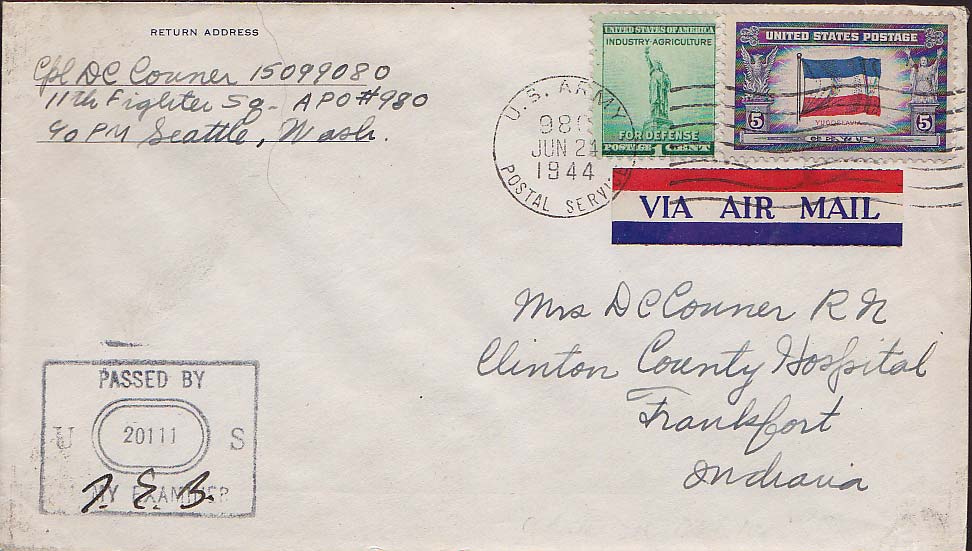 RETURN ADDRESS
Cpl DC Conner 15099080
11th Fighter Sq - APO #980
% PM Seattle, Wash.
UNITED STATES OF AMERICA
INDUSTRY·AGRICULTURE
FOR DEFENSE
POSTAGE 1 CENT
UNITED STATES POSTAGE
YUGOSLAVIA
5 5
U. S. ARMY
JUN 24
1944
POSTAL SERVICE
VIA AIR MAIL
Mrs DC Conner R N
Clinton County Hospital
Frankfort
Indiana
PASSED BY
U 20111 S
MY EXAMINER